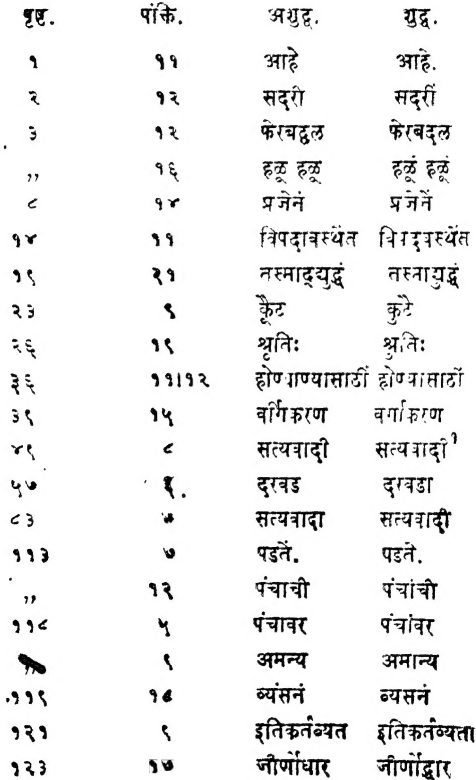 पृष्ट. पंक्ति. अशुद्ध. शुद्ध.
१ ११ आहे आहे.
२ १२ सदरी सदरीं
३ १२ फेरबद्दल फेरबदल
,, १६ हळू हळू हळूं हळूं
८ १४ प्रजेनं प्रजेनें
१४ ११ विपदावस्थेंत
१९ २१ तस्माद्युद्धं
२३ ९ कूैट कुटै
२६ १९ श्रृतिः श्रुतिः
३६ ११।१२ होण्याण्यासाठीं होण्यासाठीं
३९ १५ वर्गिकरण वर्गीकरण
४९ ८ सत्यवादी सत्यवादी १
५७ ६. दरवड दरवडा
८३ ७ सत्यवादा सत्यवादी
११३ ७ पडतें. पडते.
,, १२ पंचाची पंचांची
११८ ५ पंचावर पंचांवर
,, ९ अमन्य अमान्य
११९ १८ व्यंसनं व्यसनं
१२१ ९ इतिकर्तव्यत इतिकर्तव्यता
१२३ १७ जीर्णोधार जीर्णोद्धार